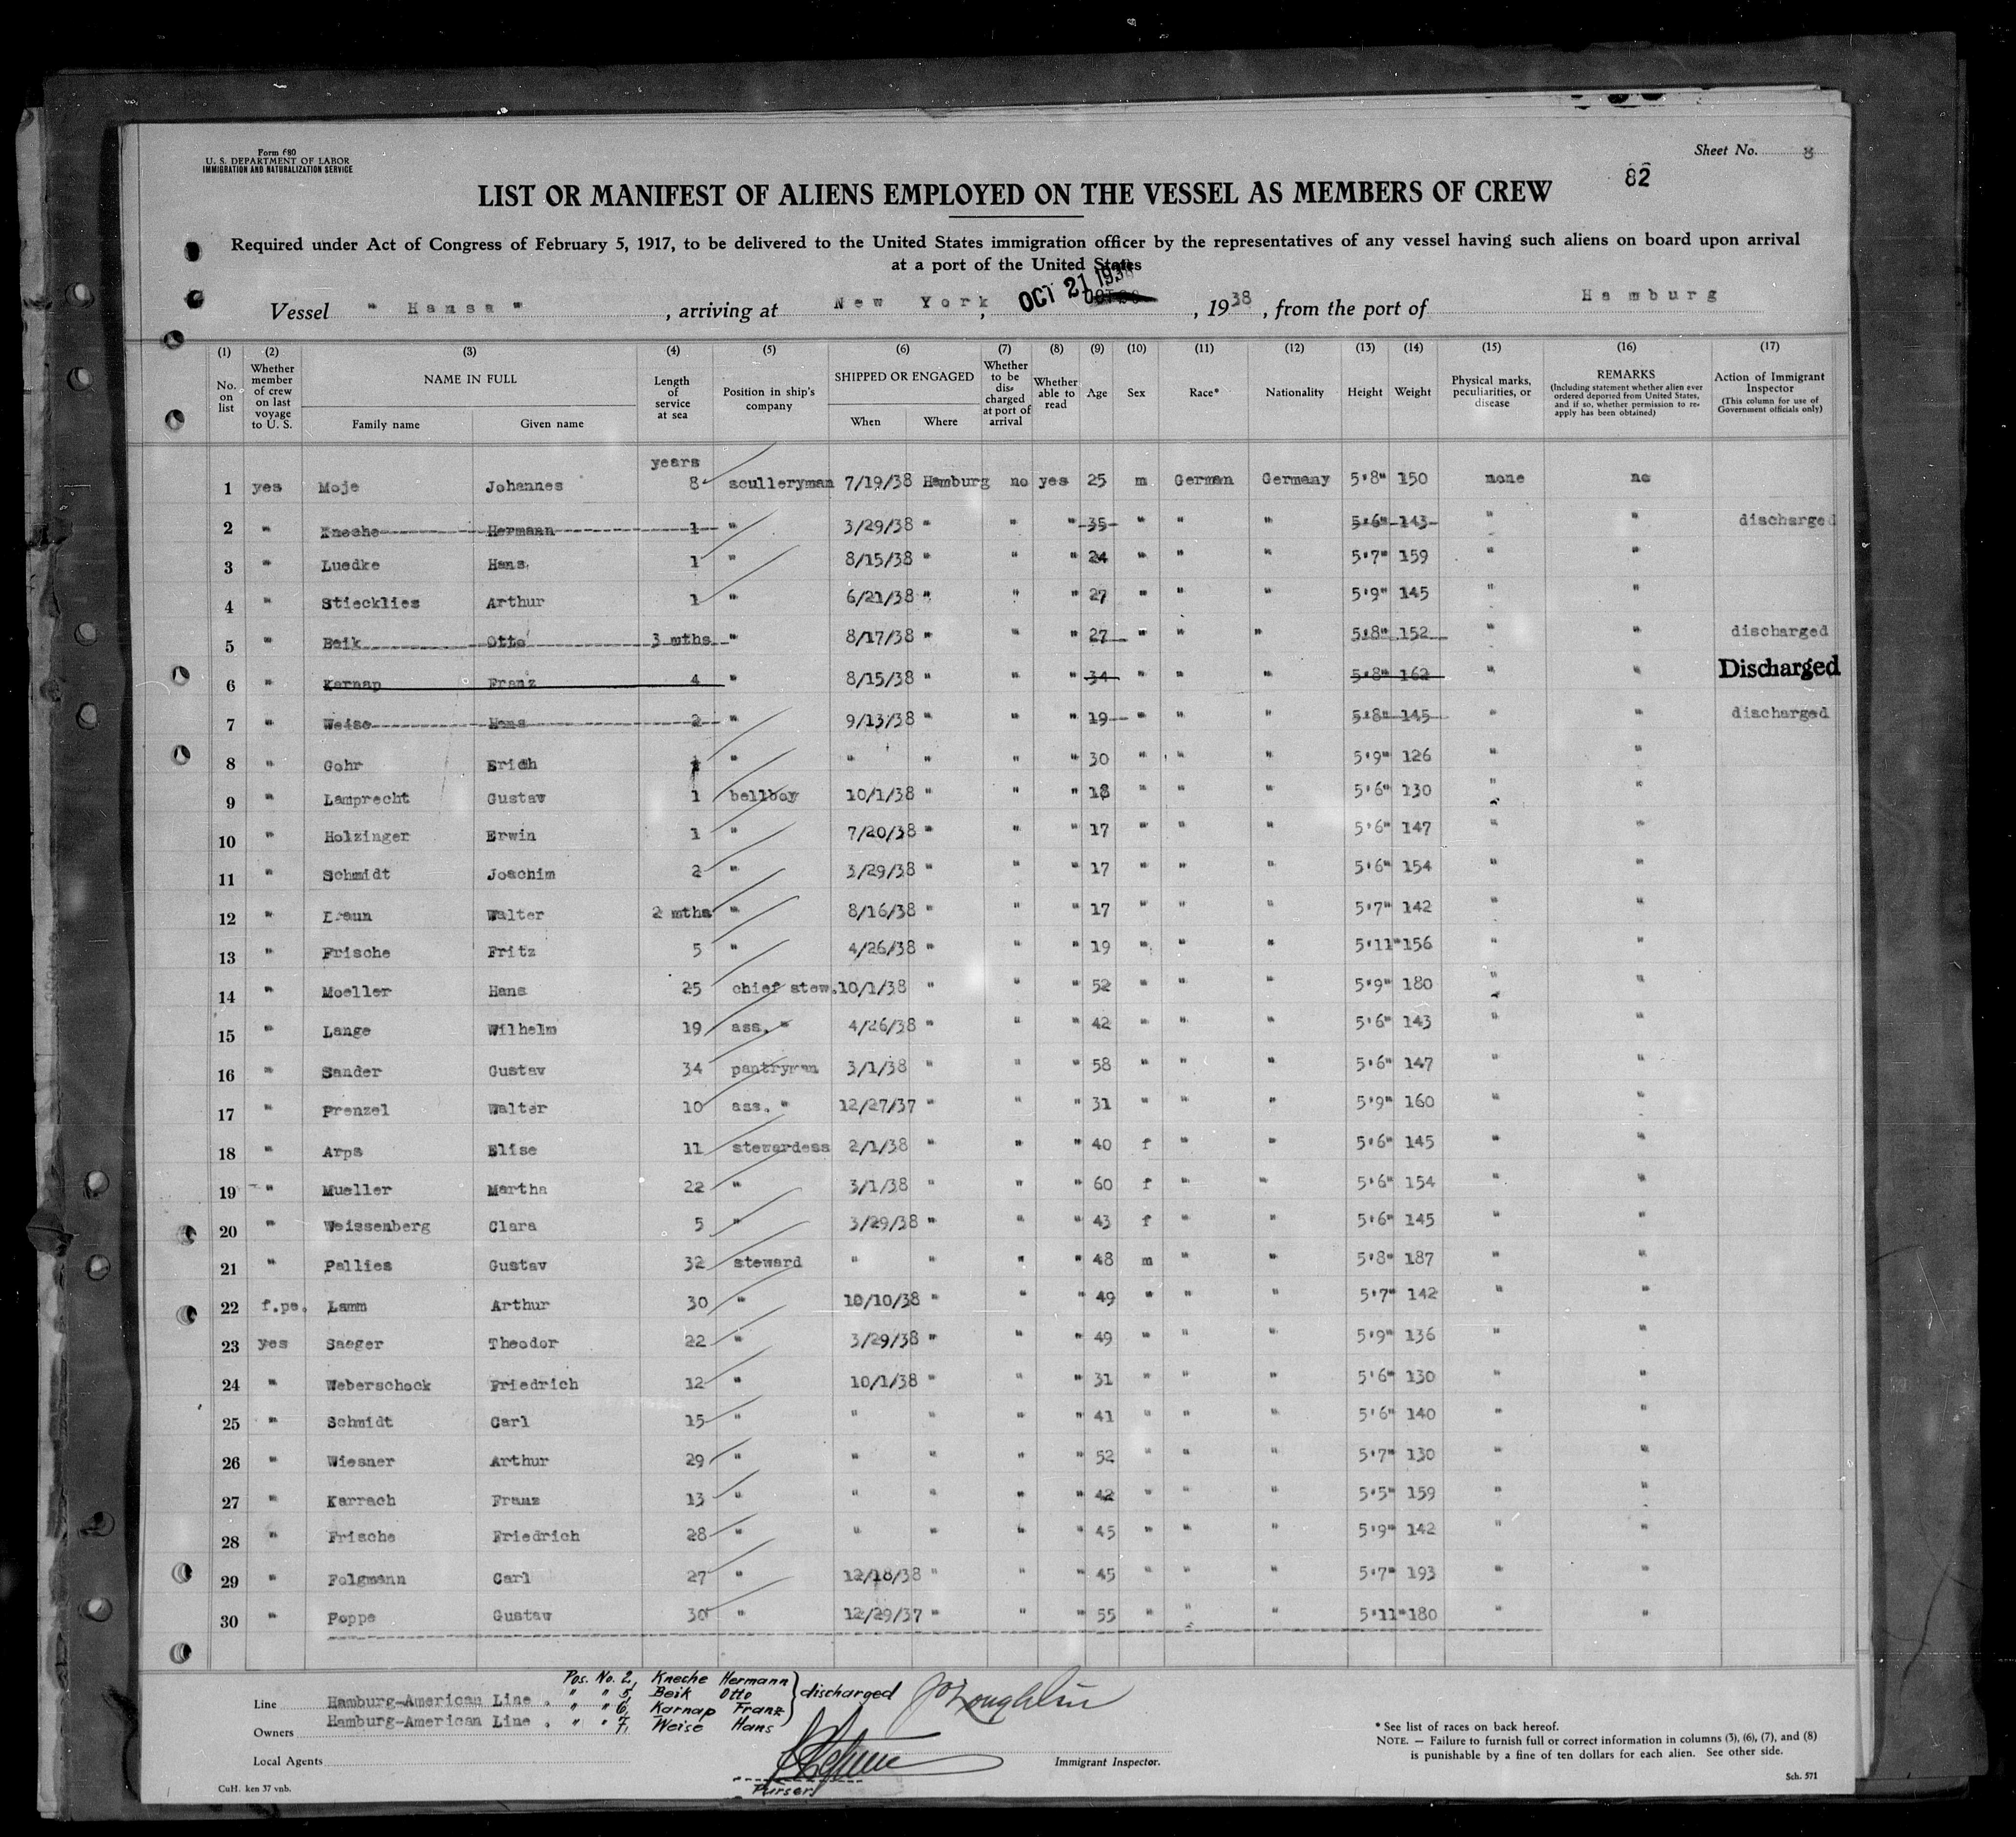 Form 680
U. S. DEPARTMENT OF LABOR
IMMIGRATION AND NATURALIZATION SERVICE
Sheet No. 8
82
LIST OR MANIFEST OF ALIENS EMPLOYED ON THE VESSEL AS MEMBERS OF CREW
Required under Act of Congress of February 5, 1917, to be delivered to the United States immigration officer by the representatives of any vessel having such aliens on board upon arrival
at a port of the United States
Vessel " Hansa " , arriving at New York, OCT 21 1938 , 1938 , from the port of Hamburg
(1) (2) (3) (4) (5) (6) (7) (8) (9) (10) (11) (12) (13) (14) (15) (16) (17)
No. on list
Whether member of crew on last voyage to U. S.
NAME IN FULL
Family name
Given name
Length of service at sea
Position in ship's company
SHIPPED OR ENGAGED
When
Where
Whether to be discharged at port of arrival
Whether able to read
Age
Sex
Race*
Nationality
Height
Weight
Physical marks, peculiarities, or disease
REMARKS
(Including statement whether alien ever ordered deported from United States, and if so, whether permission to reapply has been obtained)
Action of Immigrant Inspector
(This column for use of Government officials only)
years
1 yes Moje Johannes 8 sculleryman 7/19/38 Hamburg no yes 25 m German Germany 5'8" 150 none no
2 " Kneche Hermann 1 " 3/29/38 " " " 35 " " " 5'6" 143 " " discharged
3 " Luedke Hans 1 " 8/15/38 " " " 24 " " " 5'7" 159 " "
4 " Stiecklies Arthur 1 " 6/21/38 " " " 27 " " " 5'9" 145 " "
5 " Beik Otto 3 mths " 8/17/38 " " " 27 " " " 5'8" 152 " " discharged
6 " Karnap Franz 4 " 8/15/38 " " " 34 " " " 5'8" 162 " " Discharged
7 " Weise Hans 2 " 9/13/38 " " " 19 " " " 5'8" 145 " " discharged
8 " Gohr Erich 1 " " " " " 30 " " " 5'9" 126 " "
9 " Lamprecht Gustav 1 bellboy 10/1/38 " " " 18 " " " 5'6" 130 " "
10 " Holzinger Erwin 1 " 7/20/38 " " " 17 " " " 5'6" 147 " "
11 " Schmidt Joachim 2 " 3/29/38 " " " 17 " " " 5'6" 154 " "
12 " Braun Walter 2 mths " 8/16/38 " " " 17 " " " 5'7" 142 " "
13 " Frische Fritz 5 " 4/26/38 " " " 19 " " " 5'11" 156 " "
14 " Moeller Hans 25 chief stew. 10/1/38 " " " 52 " " " 5'9" 180 " "
15 " Lange Wilhelm 19 ass. " 4/26/38 " " " 42 " " " 5'6" 143 " "
16 " Sander Gustav 34 pantryman 3/1/38 " " " 58 " " " 5'6" 147 " "
17 " Prenzel Walter 10 ass. " 12/27/37 " " " 31 " " " 5'9" 160 " "
18 " Arps Elise 11 stewardess 2/1/38 " " " 40 f " " 5'6" 145 " "
19 " Mueller Martha 22 " 3/1/38 " " " 60 f " " 5'6" 154 " "
20 " Weissenberg Clara 5 " 3/29/38 " " " 43 f " " 5'6" 145 " "
21 " Pallies Gustav 32 steward " " " " 48 m " " 5'8" 187 " "
22 f.pe. Lamm Arthur 30 " 10/10/38 " " " 49 " " " 5'7" 142 " "
23 yes Saeger Theodor 22 " 3/29/38 " " " 49 " " " 5'9" 136 " "
24 " Weberschock Friedrich 12 " 10/1/38 " " " 31 " " " 5'6" 130 " "
25 " Schmidt Carl 15 " " " " " 41 " " " 5'6" 140 " "
26 " Wiesner Arthur 29 " " " " " 52 " " " 5'7" 130 " "
27 " Karrach Franz 13 " " " " " 42 " " " 5'5" 159 " "
28 " Frische Friedrich 28 " " " " " 45 " " " 5'9" 142 " "
29 " Folgmann Carl 27 " 12/18/38 " " " 45 " " " 5'7" 193 " "
30 " Poppe Gustav 30 " 12/29/37 " " " 55 " " " 5'11" 180 " "
Pos. No. 2, Kneche Hermann
" " 5, Beik Otto
" " 6, Karnap Franz
" " 7, Weise Hans
discharged
Line Hamburg-American Line .
Owners Hamburg-American Line .
Local Agents
Immigrant Inspector.
Purser
* See list of races on back hereof.
NOTE. — Failure to furnish full or correct information in columns (3), (6), (7), and (8)
is punishable by a fine of ten dollars for each alien. See other side.
CuH. ken 37 vnb.
Sch. 571